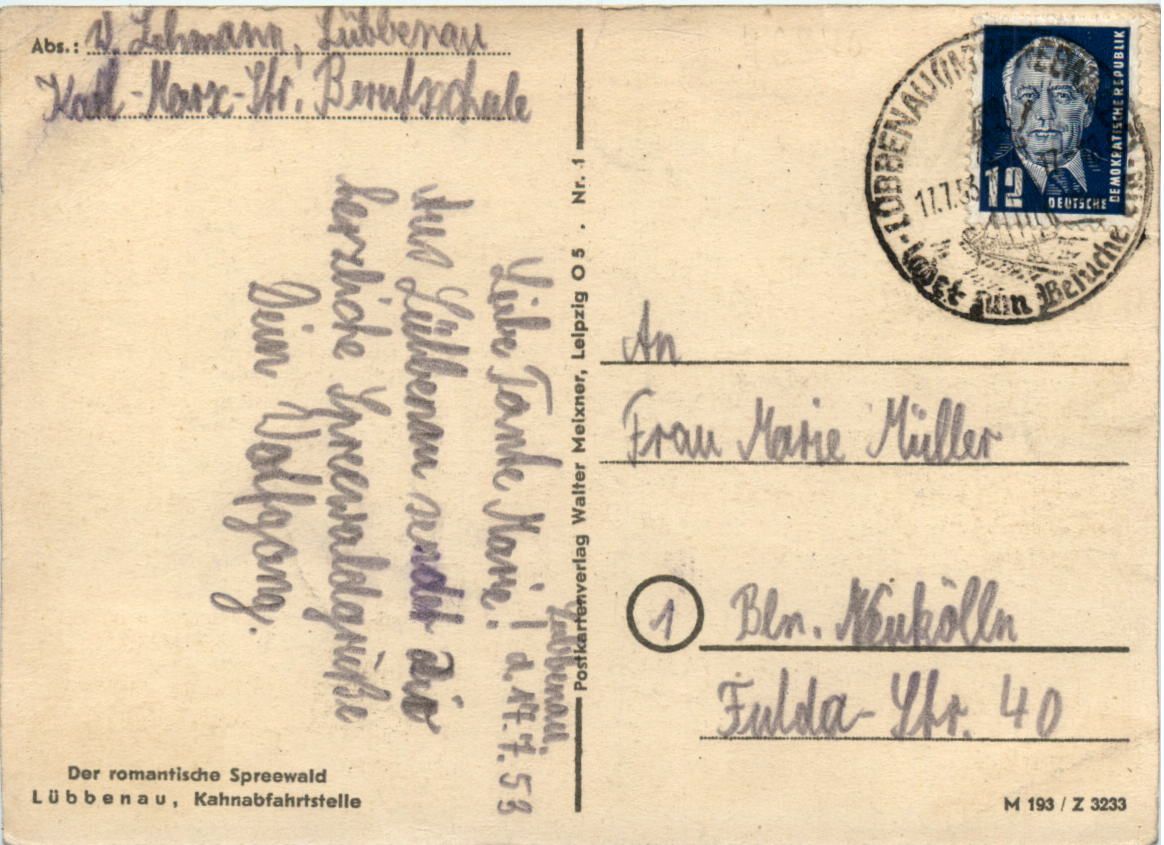 Abs.: W. Lehmann, Lübbenau
Karl-Marx-Str. Berufsschule
Lübbenau,
d. 17.7.53
Liebe Tante Marie!
Aus Lübbenau sendet dir
herzliche Spreewaldgrüße
Dein Wolfgang.
Der romantische Spreewald
Lübbenau, Kahnabfahrtstelle
Postkartenverlag Walter Meixner, Leipzig O 5 . Nr. 1
LÜBBENAU (
17.7.53
ladet zum Besuche
12
DEUTSCHE
DEMOKRATISCHE REPUBLIK
An
Frau Marie Müller
1
Bln. Neukölln
Fulda-Str. 40
M 193 / Z 3233